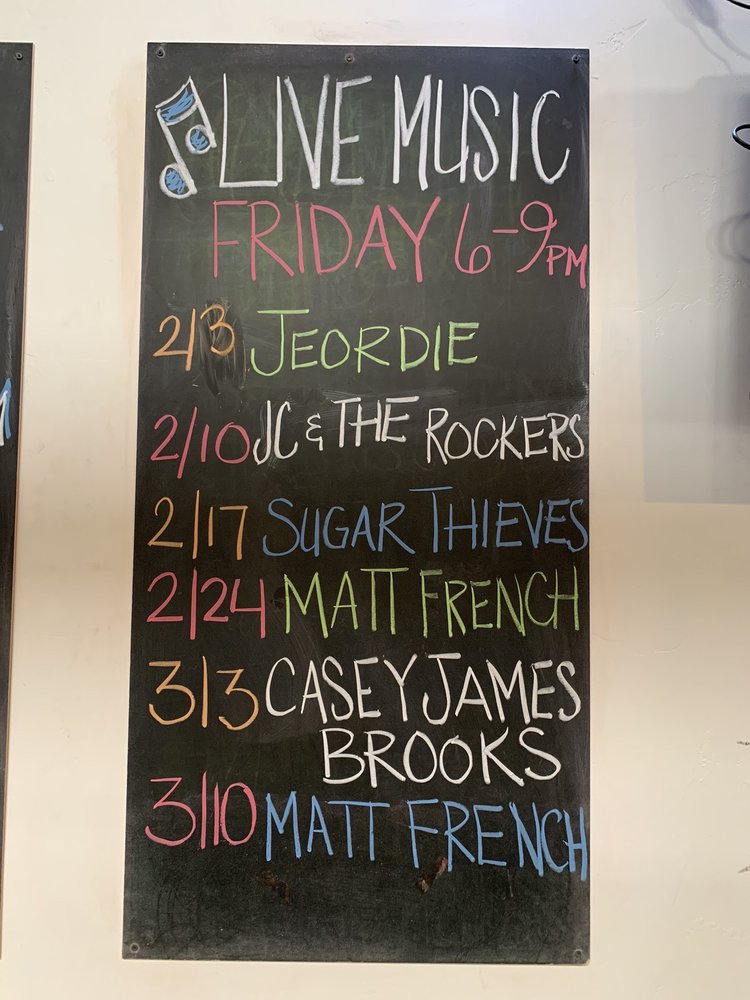 LIVE MUSIC
FRIDAY 6-9PM
2/3 JEORDIE
2/10 JC & THE ROCKERS
2/17 SUGAR THIEVES
2/24 MATT FRENCH
3/3 CASEY JAMES
BROOKS
3/10 MATT FRENCH